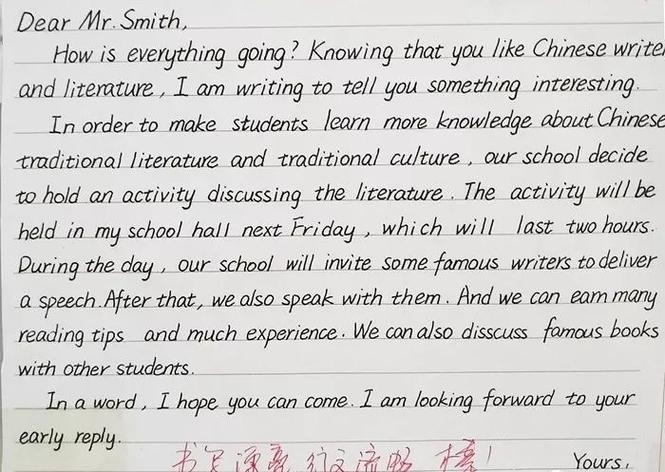 Dear Mr. Smith,
How is everything going? Knowing that you like Chinese writer
and literature, I am writing to tell you something interesting.
In order to make students learn more knowledge about Chinese
traditional literature and traditional culture, our school decide
to hold an activity discussing the literature. The activity will be
held in my school hall next Friday, which will last two hours.
During the day, our school will invite some famous writers to deliver
a speech. After that, we also speak with them. And we can earn many
reading tips and much experience. We can also disscuss famous books
with other students.
In a word, I hope you can come. I am looking forward to your
early reply.
书写漂亮 行文流畅 棒!
Yours,